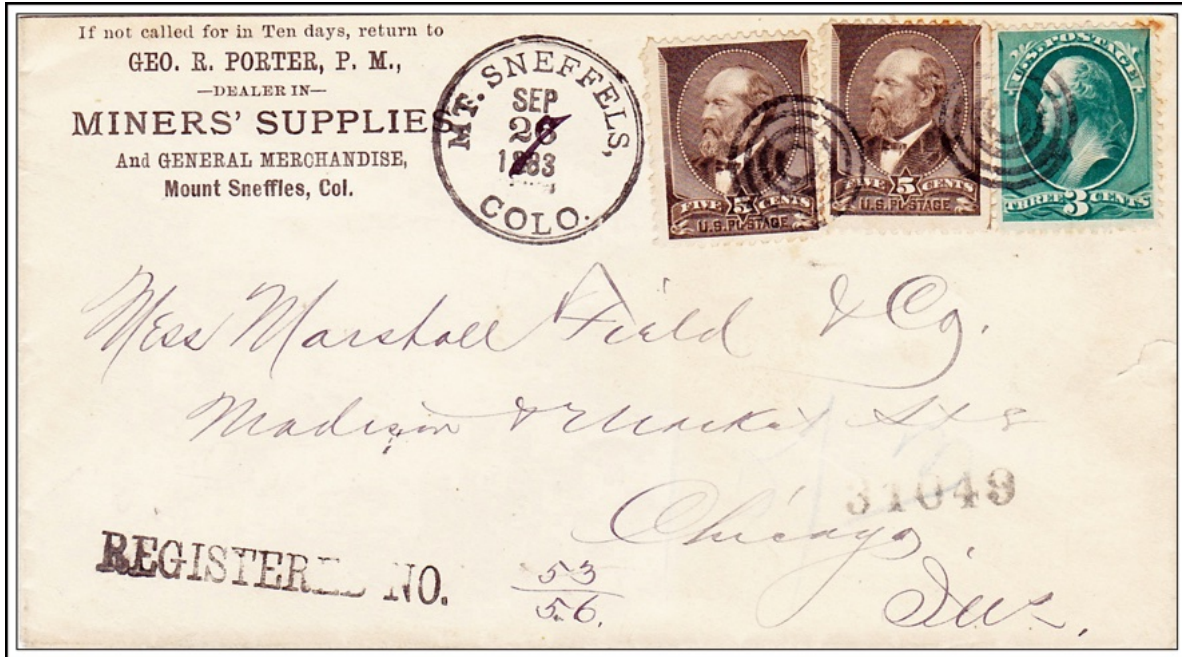 If not called for in Ten days, return to
GEO. R. PORTER, P. M.,
—DEALER IN—
MINERS' SUPPLIE
And GENERAL MERCHANDISE,
Mount Sneffles, Col.
MT. SNEFFELS,
SEP
26
1883
COLO.
FIVE 5 CENTS
U.S. POSTAGE
FIVE 5 CENTS
U.S. POSTAGE
U.S. POSTAGE
THREE 3 CENTS
Mess Marshall Field & Co.
Madison & Market Sts
31049
Chicago
Ills.
REGISTERED NO.
53
56.